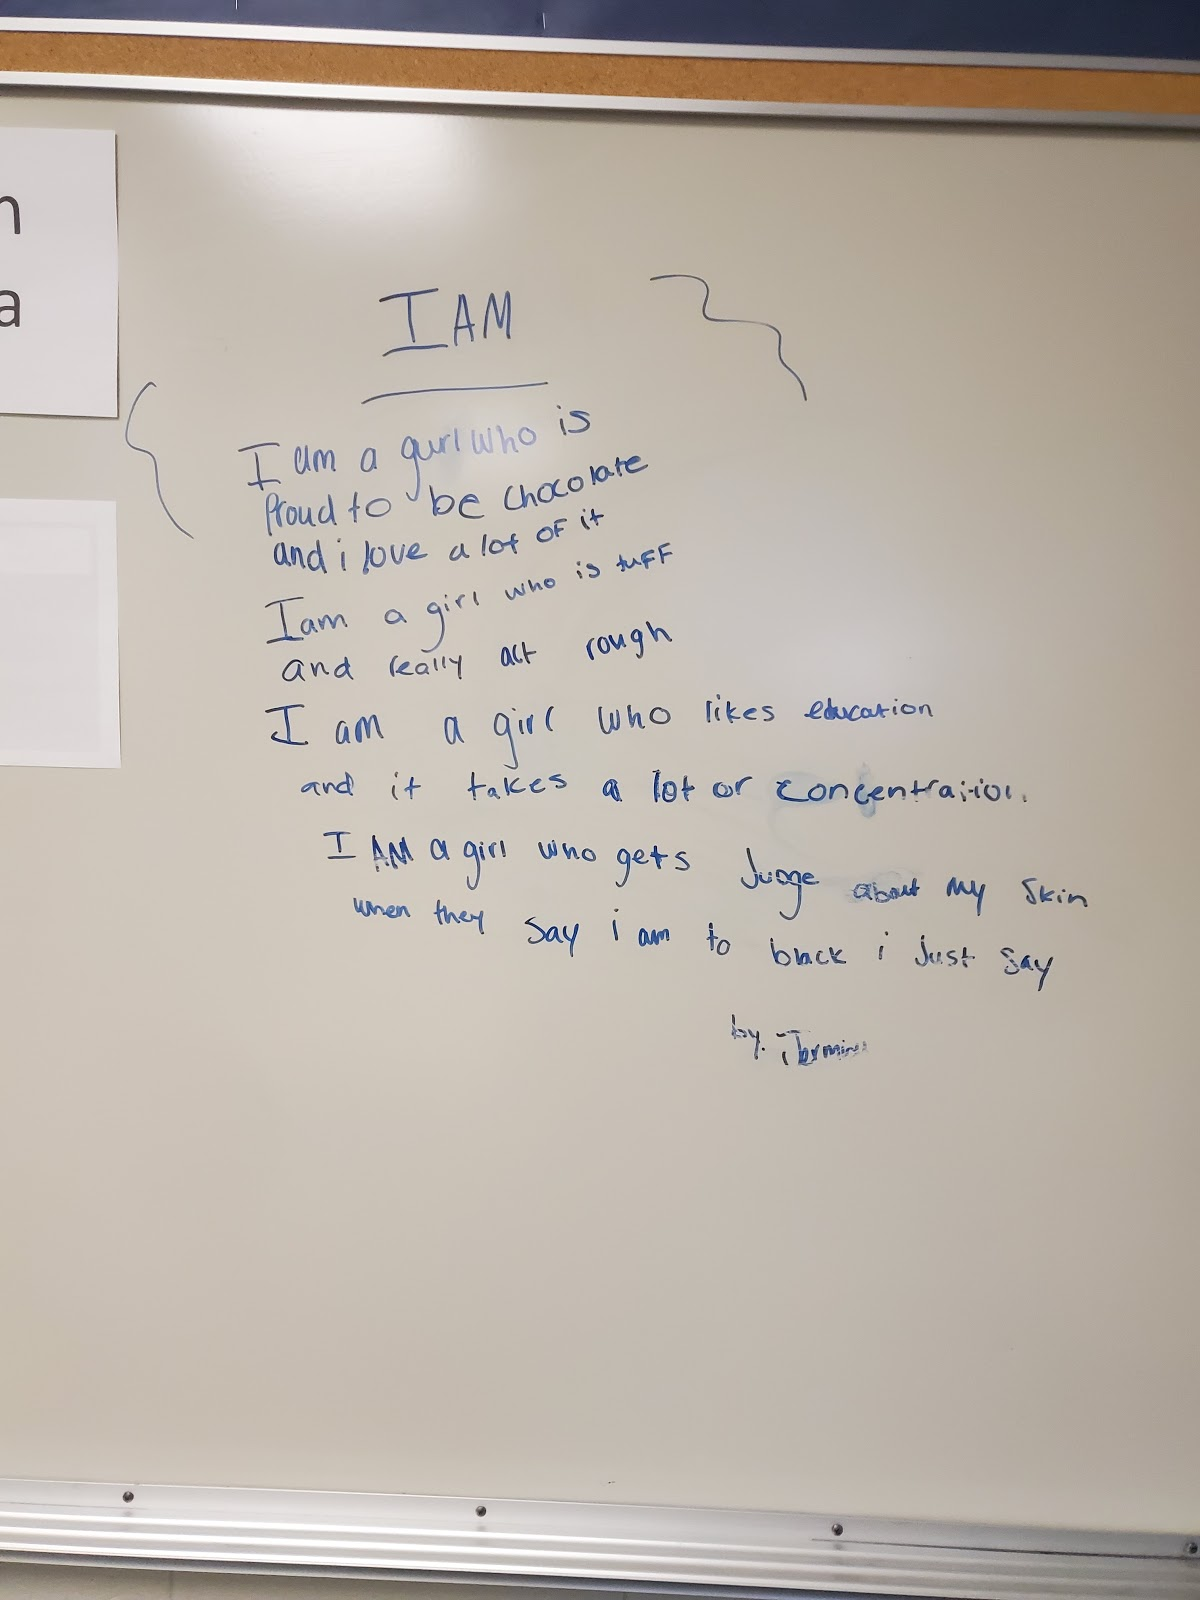 n
a
I AM
I am a gurl who is
Proud to be chocolate
and i love a lot of it
I am a girl who is tuff
and really act rough
I am a girl who likes education
and it takes a lot or concentration.
I AM a girl who gets Judge about my skin
when they say i am to black i just say
by.